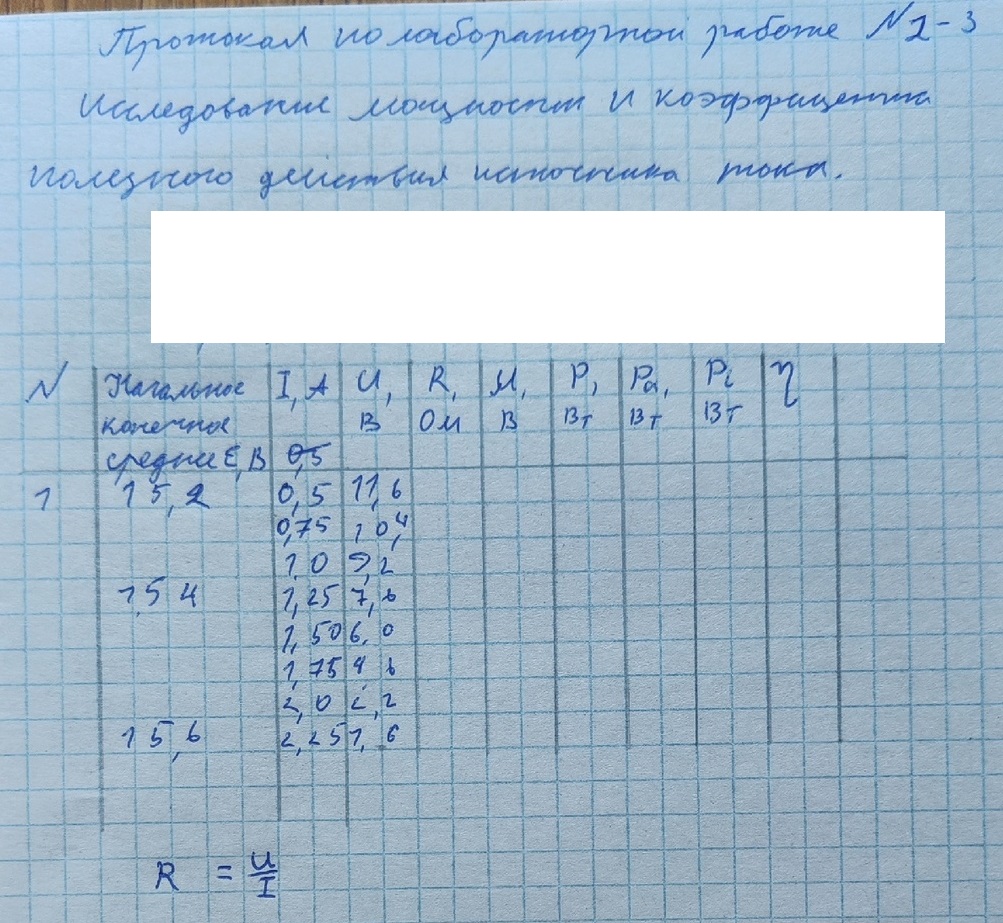 Протокол по лабораторной работе N 2-3
Исследование мощности и коэффициента
полезного действия источника тока.
N Начальное I, A U, R, U, P, Pa, Pi η
конечное В Ом В Вт Вт Вт
средние E, В 0,5
1 15,2 0,5 11,6
0,75 10,4
1,0 9,2
15 4 1,25 7,6
1,50 6,0
1,75 4 6
2,0 2,2
15,6 2,25 1,6
R = U/I